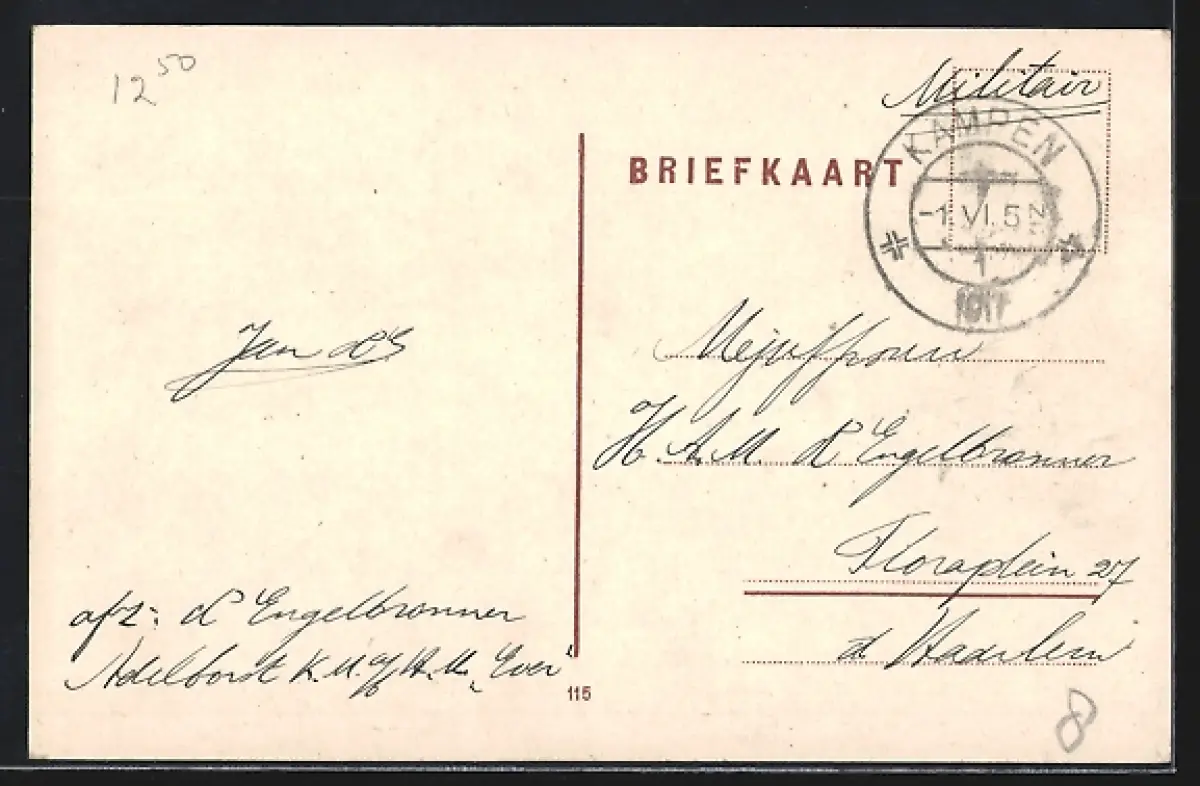 12 50
Militair
KAMPEN
BRIEFKAART
-1 VI. 5 N
1917
Mejuffrouw
Jan d'E
H. A. M. d'Engelbronner
Floraplein 27
afz: d'Engelbronner
à Haarlem
Adelborst K. M. a/b H. M. „Ever"
115
8